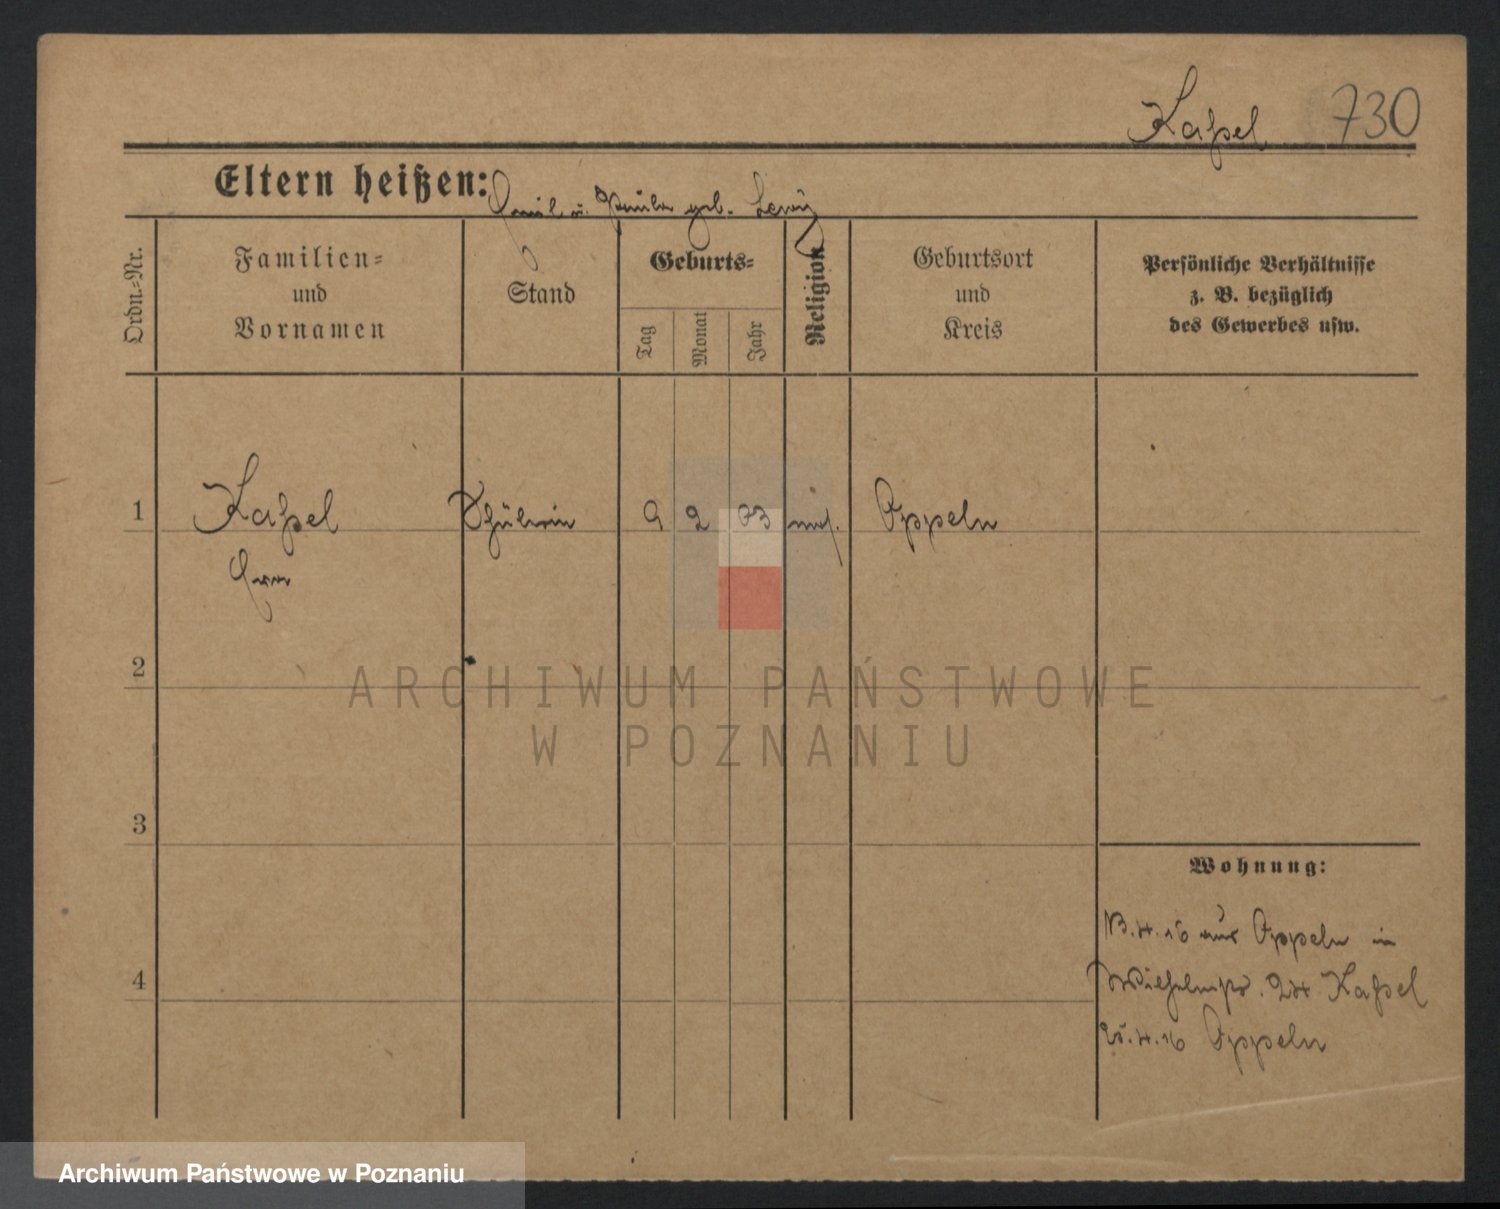 Kaßel 730
Eltern heißen: Emil u. Paula geb. Lewy
Ordn.-Nr.
Familien-
und
Vornamen
Stand
Geburts-
Tag
Monat
Jahr
Religion
Geburtsort
und
Kreis
Persönliche Verhältnisse
z. B. bezüglich
des Gewerbes usw.
1 Kaßel Schülerin 9 2 03 mos. Oppeln
2
3
4
Wohnung:
13.4.16 aus Oppeln in
Wilhelmstr. 24 Kaßel
25.4.16 Oppeln
ARCHIWUM PAŃSTWOWE
W POZNANIU
Archiwum Państwowe w Poznaniu